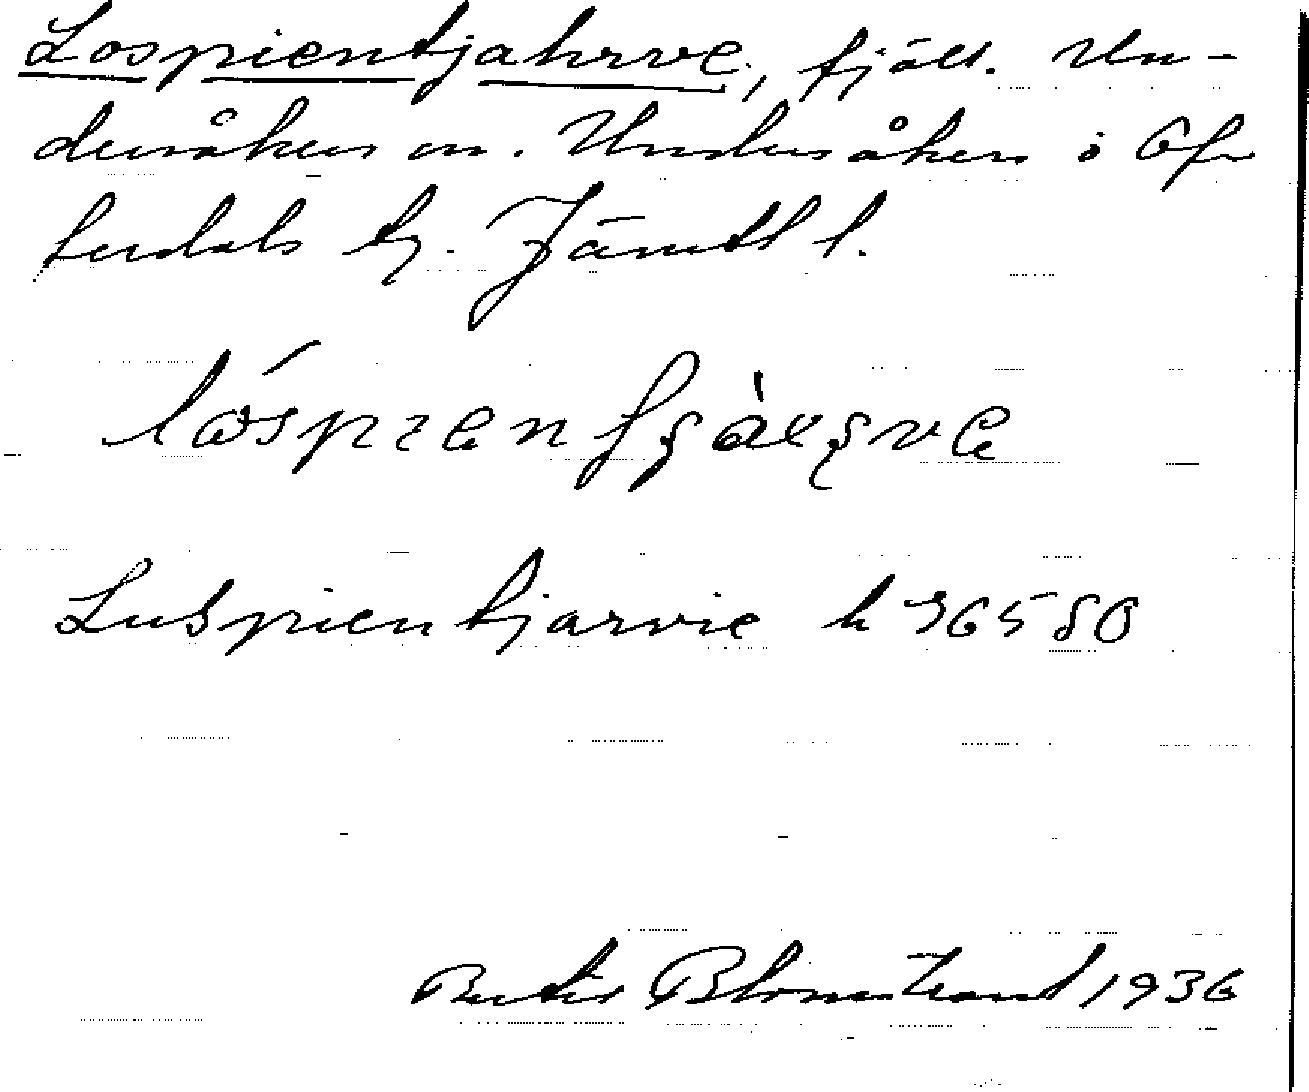 Lospientjahrve, fjäll. Un-
dersåkers sn. Undersåkers o Of-
ferdals tg. Jämtl l.
Luspientjarvie k 36580
Bertil Blomstrand 1936